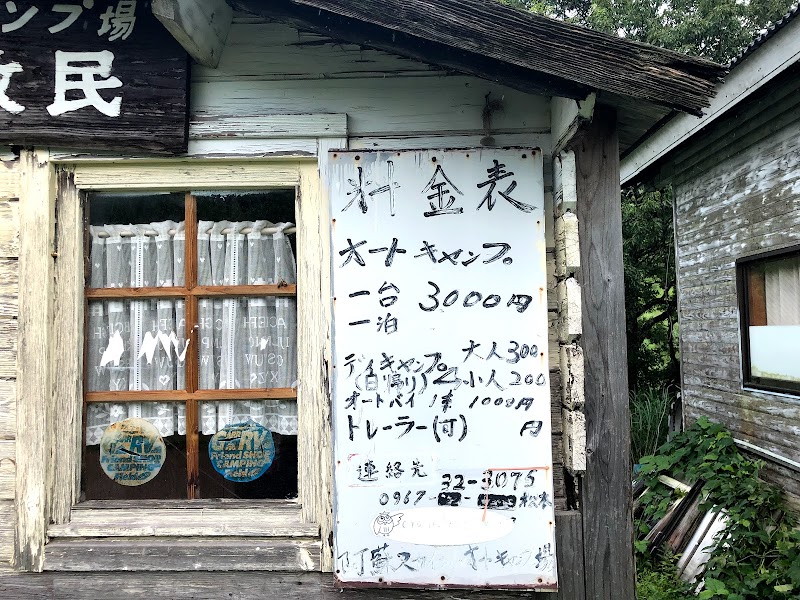 ンプ場
民
料金表
オートキャンプ
一台 3000円
一泊
デイキャンプ 大人300
(日帰り) 小人200
オートバイ 1キ 1000円
トレーラー(付) 円
連絡先 32-3075
0967- 松本
阿蘇 キャンプ場
CAR RV
Friend SHOP
CAMPING
CAR RV
Friend SHOP
CAMPING